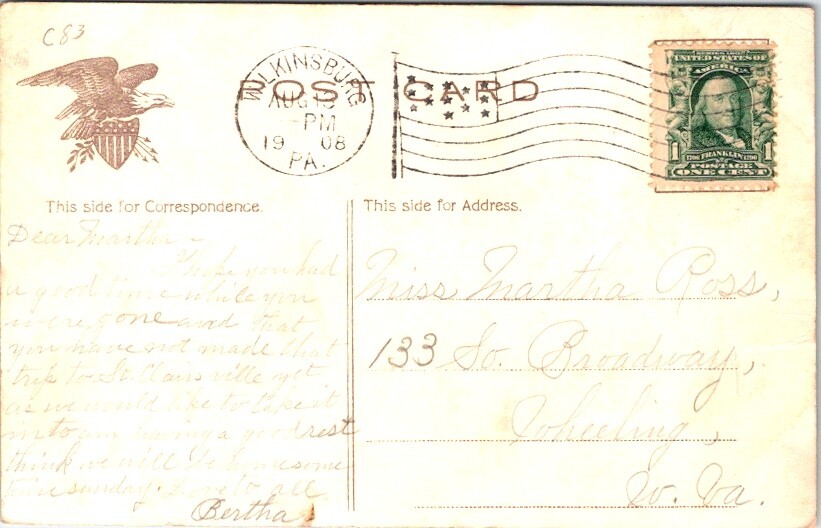 C83
POST CARD
WILKINSBURG
AUG 13
-PM
19 08
PA.
SERIES 1902
UNITED STATES OF
AMERICA
1 1706 FRANKLIN 1790 1
POSTAGE
ONE CENT
This side for Correspondence.
Dear Martha -
I hope you had
a good time while you
were gone and that
you have not made that
trip to St. Clairsville yet
as we would like to take it
in to am having a good rest
think we will be home some
time sunday. Love to all
Bertha
This side for Address.
Miss Martha Ross,
133 So. Broadway,
Wheeling,
W. Va.